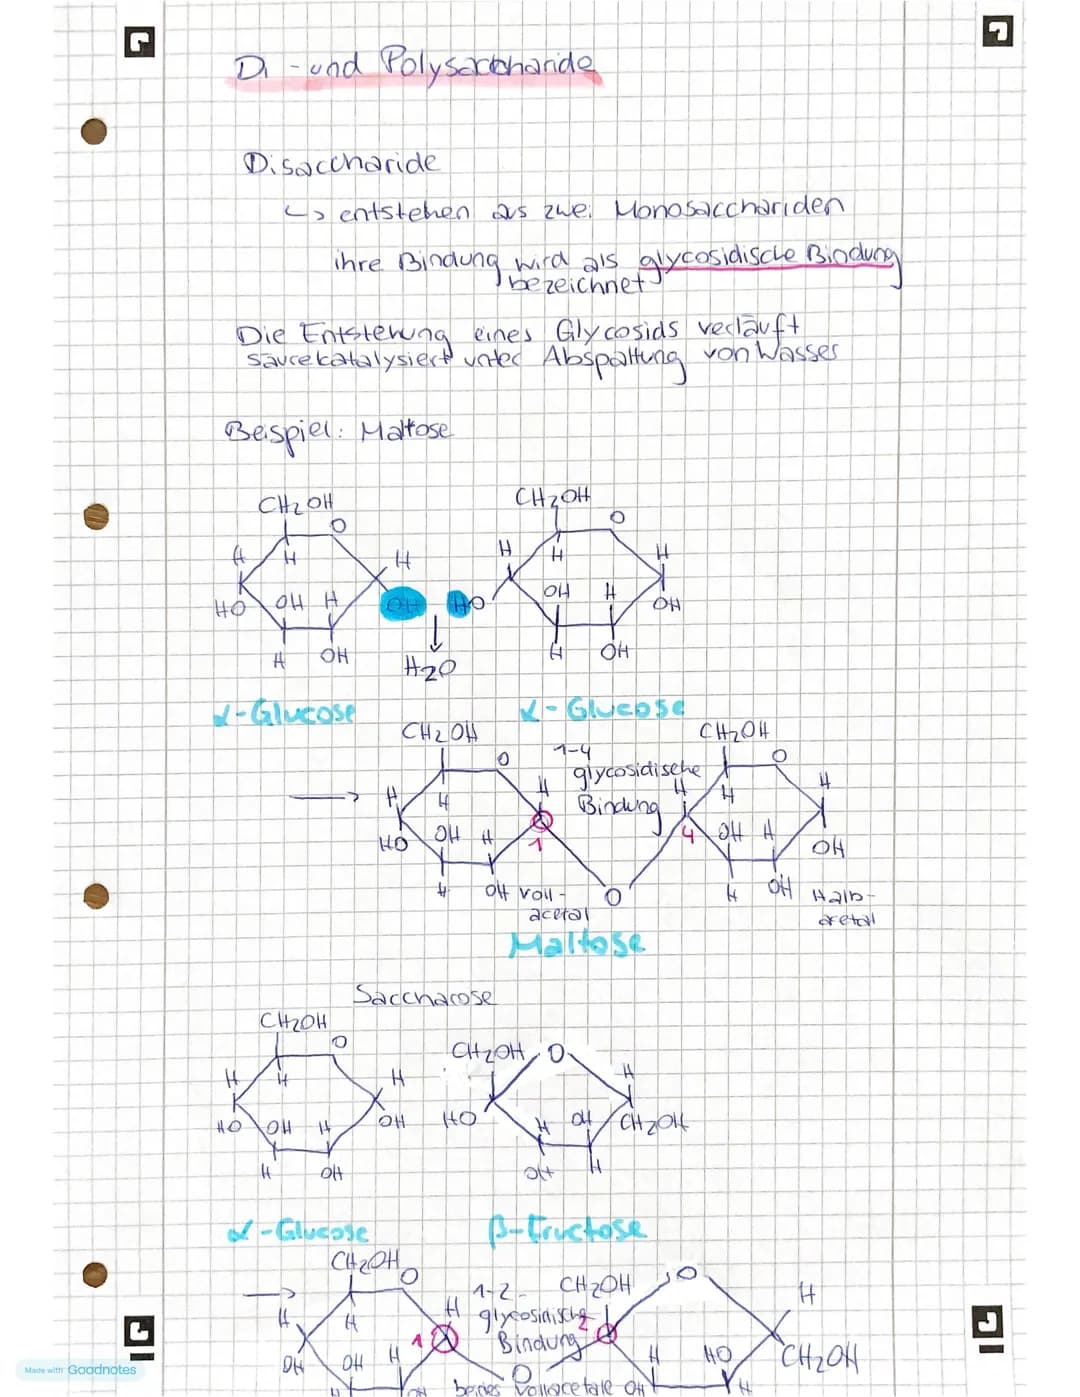 Di - und Polysaccharide
Disaccharide
↳ entstehen aus zwei Monosacchariden
ihre Bindung wird als glycosidische Bindung
bezeichnet
Die Entstehung eines Glycosids verläuft
säurekatalysiert unter Abspaltung von Wasser
Beispiel: Maltose
CH2OH CH2OH
O O
H H H H H H
HO OH H OH HO OH H OH
H OH H2O H OH
α-Glucose α-Glucose
CH2OH 1-4 CH2OH
O glycosidische O
H H H Bindung H H H
HO OH H 1 4 OH H OH
H OH Voll- O H OH Halb-
acetal acetal
Maltose
Saccharose
CH2OH
O CH2OH O
H H H H
HO OH H OH HO H OH CH2OH
H OH OH H
α-Glucose β-Fructose
CH2OH O 1-2- CH2OH O H
H H H glycosinische 2
OH OH H 1 Bindung H HO CH2OH
H OH O OH H
beides Vollacetale
Made with Goodnotes